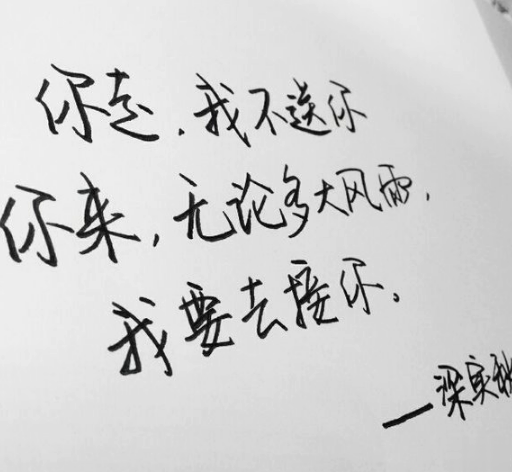 你走，我不送你
你来，无论多大风雨，
我要去接你。
——深实